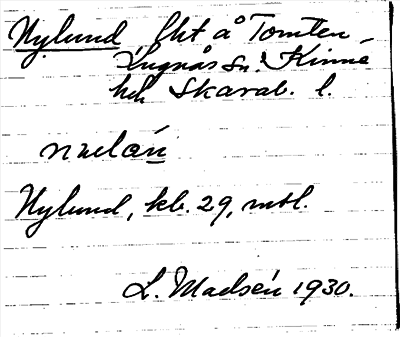 Nylund, lht å Tomten,
Lugnås sn. Kinne
hd. Skarab. l.
nỳlún
Nylund, kb. 29, mtl.
L. Madsén 1930.